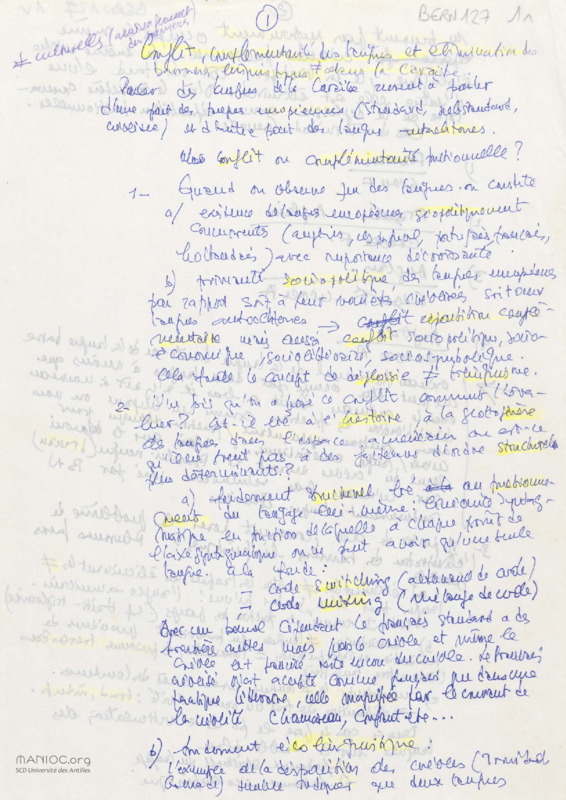 ① BERN127 1r
≠ culturelles (
des barrières
Conflit, complémentarité des langues et élimination des
barrières linguistiques ≠ dans la Caraïbe
Parler des langues de la Caraïbe revient à parler
d'une part des langues européennes (standard, substandard,
créolisée) et d'autre part des langues autochtones.
conflit ou complémentarité fonctionnelle ?
1- Quand on observe des langues on constate
a/ existence de langues européennes géopolitiquement
concurrents (anglais, espagnol, portugais, français,
hollandais) avec importance décroissante.
b) primauté sociopolitique des langues européennes
par rapport soit à leurs variétés créoles soit aux
langues autochtones → conflit répartition complé-
mentaire mais aussi conflit sociopolitique, socio-
économique, sociolittéraire, sociosymbolique.
Cela fonde le concept de diglossie ≠ bilinguisme.
2- Une fois qu'on a posé ce conflit comment l'éva-
luer ? Est-il lié à l'histoire, à la
des langues dans l'espace américain ou est-ce
qu'il ne tient pas à des facteurs d'ordre structurel
plus déterminants ?
a) fondement structurel lié à la au fonctionne-
ment du langage lui-même. syntag-
matique en fonction de laquelle à chaque point de
l'axe syntagmatique on ne peut avoir qu'une seule
langue à la fois :
- code switching (alternance de code)
- code mixing (mélange de code)
Avec un bémol cependant le français standard a des
frontières nettes mais pas le créole et même le
créole est
créolisé n'est accepté comme français que dans une
pratique littéraire, celle magnifiée par le courant de
la créolité Chamoiseau, Confiant etc...
b) Fondement écolinguistique :
l'exemple de la disparition des créoles (Trinidad,
Grenade) semble indiquer que deux langues
MANIOC.org
SCD Université des Antilles